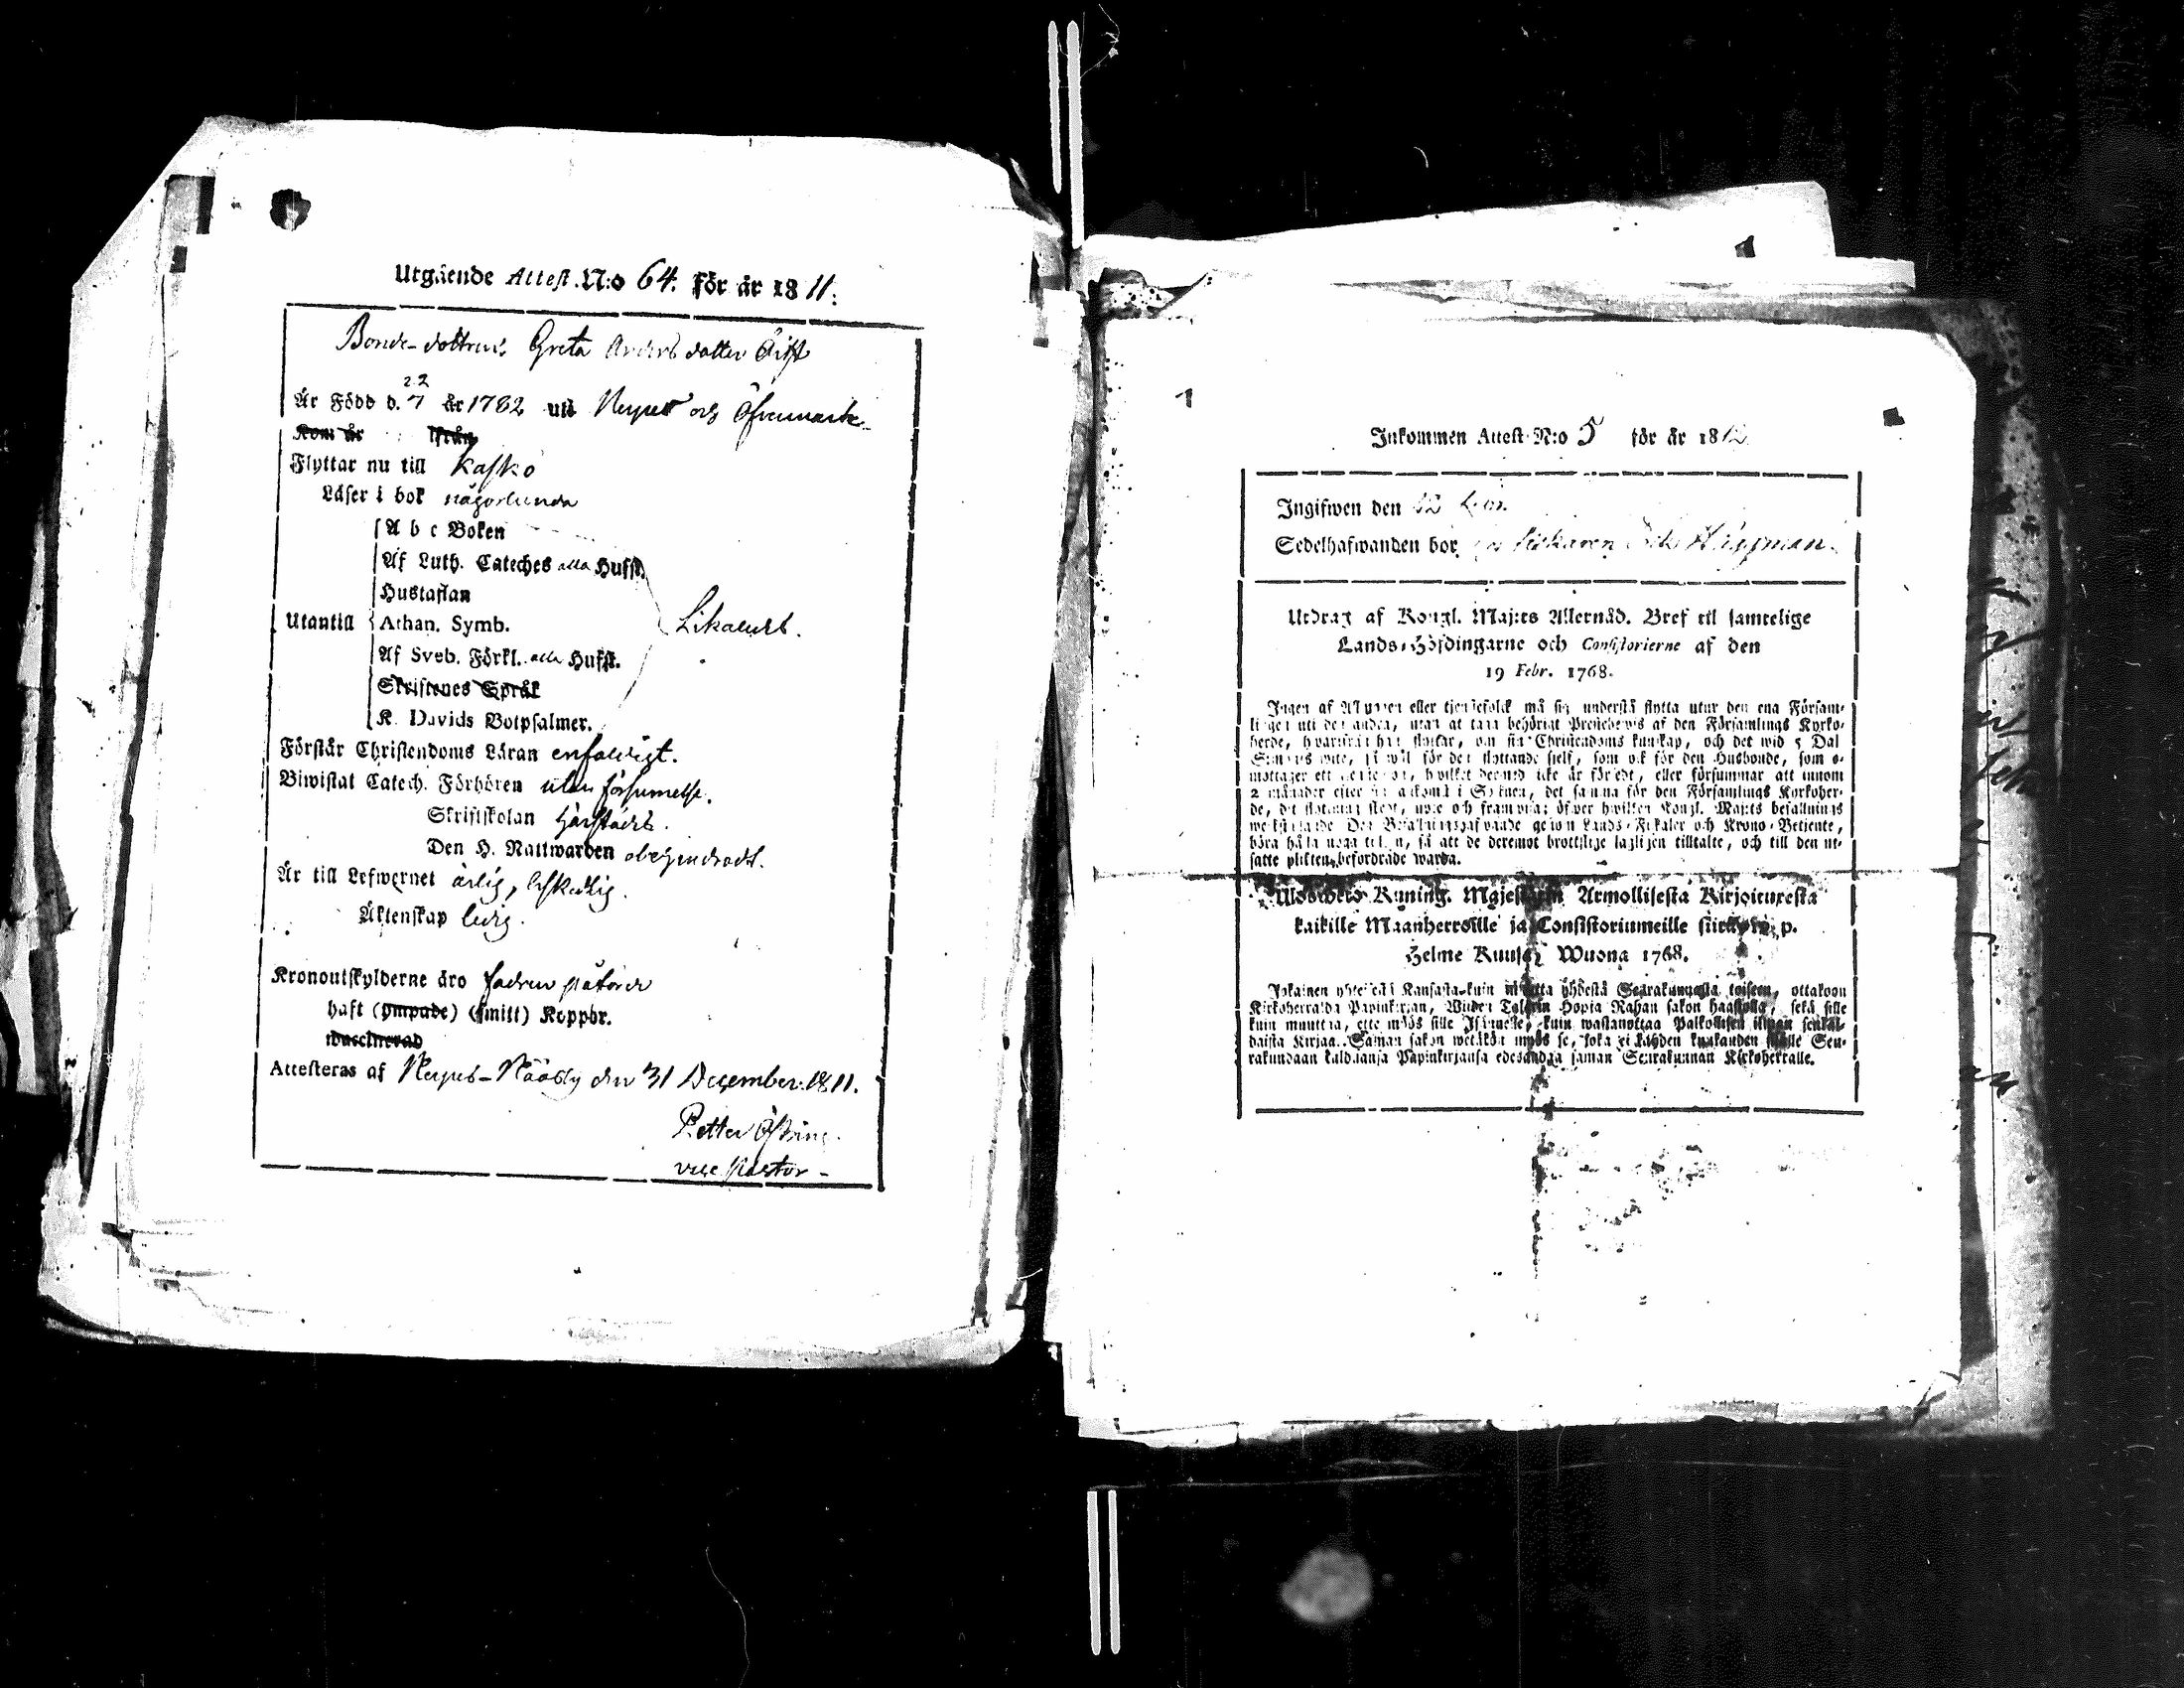 Utgående Attest. N:o 64. för år 1811.
Bonde-dottren Greta Anders dotter
Är Född d. 22/7 år 1782 uti och Öfvermark
Kom år ifrån
Flyttar nu till Kaskö
Läser i bok någorlunda
A b c Boken
Af Luth. Cateches alla Hufst.
Hustaflan
Utantill Athan. Symb. Likaledes.
Af Sveb. Förkl. alla Hufst.
Skriftenes Språk
K. Davids Botpsalmer.
Förstår Christendoms Läran enfaldigt.
Biwistat Catech. Förhören utan försumelse.
Skriftskolan
Den H. Nattwarden obehindradt.
Är till Lefwernet ärlig, beskedlig.
Äktenskap ledig.
Kronoutskylderne äro fadren påförde
haft (ympade) (smitt) Koppor.
waccinerad
Attesteras af Nerpes-Nääsby den 31 December 1811.
Petter
vice Pastor
1
Inkommen Attest N:o 5 för år 1812
Ingifwen den 12
Sedelhafwanden bor Häggman.
Utdrag af Kongl. Maj:ts Allernåd. Bref til samtelige
Lands-Höfdingarne och Consistorierne af den
19 Febr. 1768.
Ingen af eller tjenstefolck må sig understå flytta utur den ena Försam-
lingen uti den andra, utan at taga behörigt Prestebewis af den Församlings Kyrko-
herde, hwarifrån han flyttar, om sin Christendoms kunskap, och det wid 5 Dal
wite, så wäl för den flyttande sielf, som ock för den Husbonde, som e-
mottager ett hwilket dermed icke är försedt, eller försummar att innom
2 månader efter ankomst i Socknen, det samma för den Församlings Kyrkoher-
de, dit flyttning skedt, upte och framwisa; öfwer hwilken Kongl. Maj:ts befallnings
Lands-Fiskaler och Krono-Betiente,
böra hålla noga så att de deremot brottslige lagligen tilltalte, och till den ut-
satte plikten befordrade warda.
Uloswedo Kuning. Majestetin Armollisesta Kirjoituxesta
kaikille Maanherroille ja Consistoriumeille p.
Helme Kuusa Wuona 1768.
Jokainen Kansasta kuin muutta yhdestä Seurakunnasta toiseen, ottakoon
Kirkoherralda Papinkirjan, Wiiden Talarin Hopia Rahan sakon haastolla, sekä sille
kuin muuttaa, että myös sille Isännelle, kuin wastanottaa Palkollisen ilman senkal-
daista Kirjaa. Saman sakon wetäkön myös se, joka ei kahden kuukauden sisälle Seu-
rakundaan tulduansa Papinkirjansa edesandaa saman Seurakunnan Kirkoherralle.